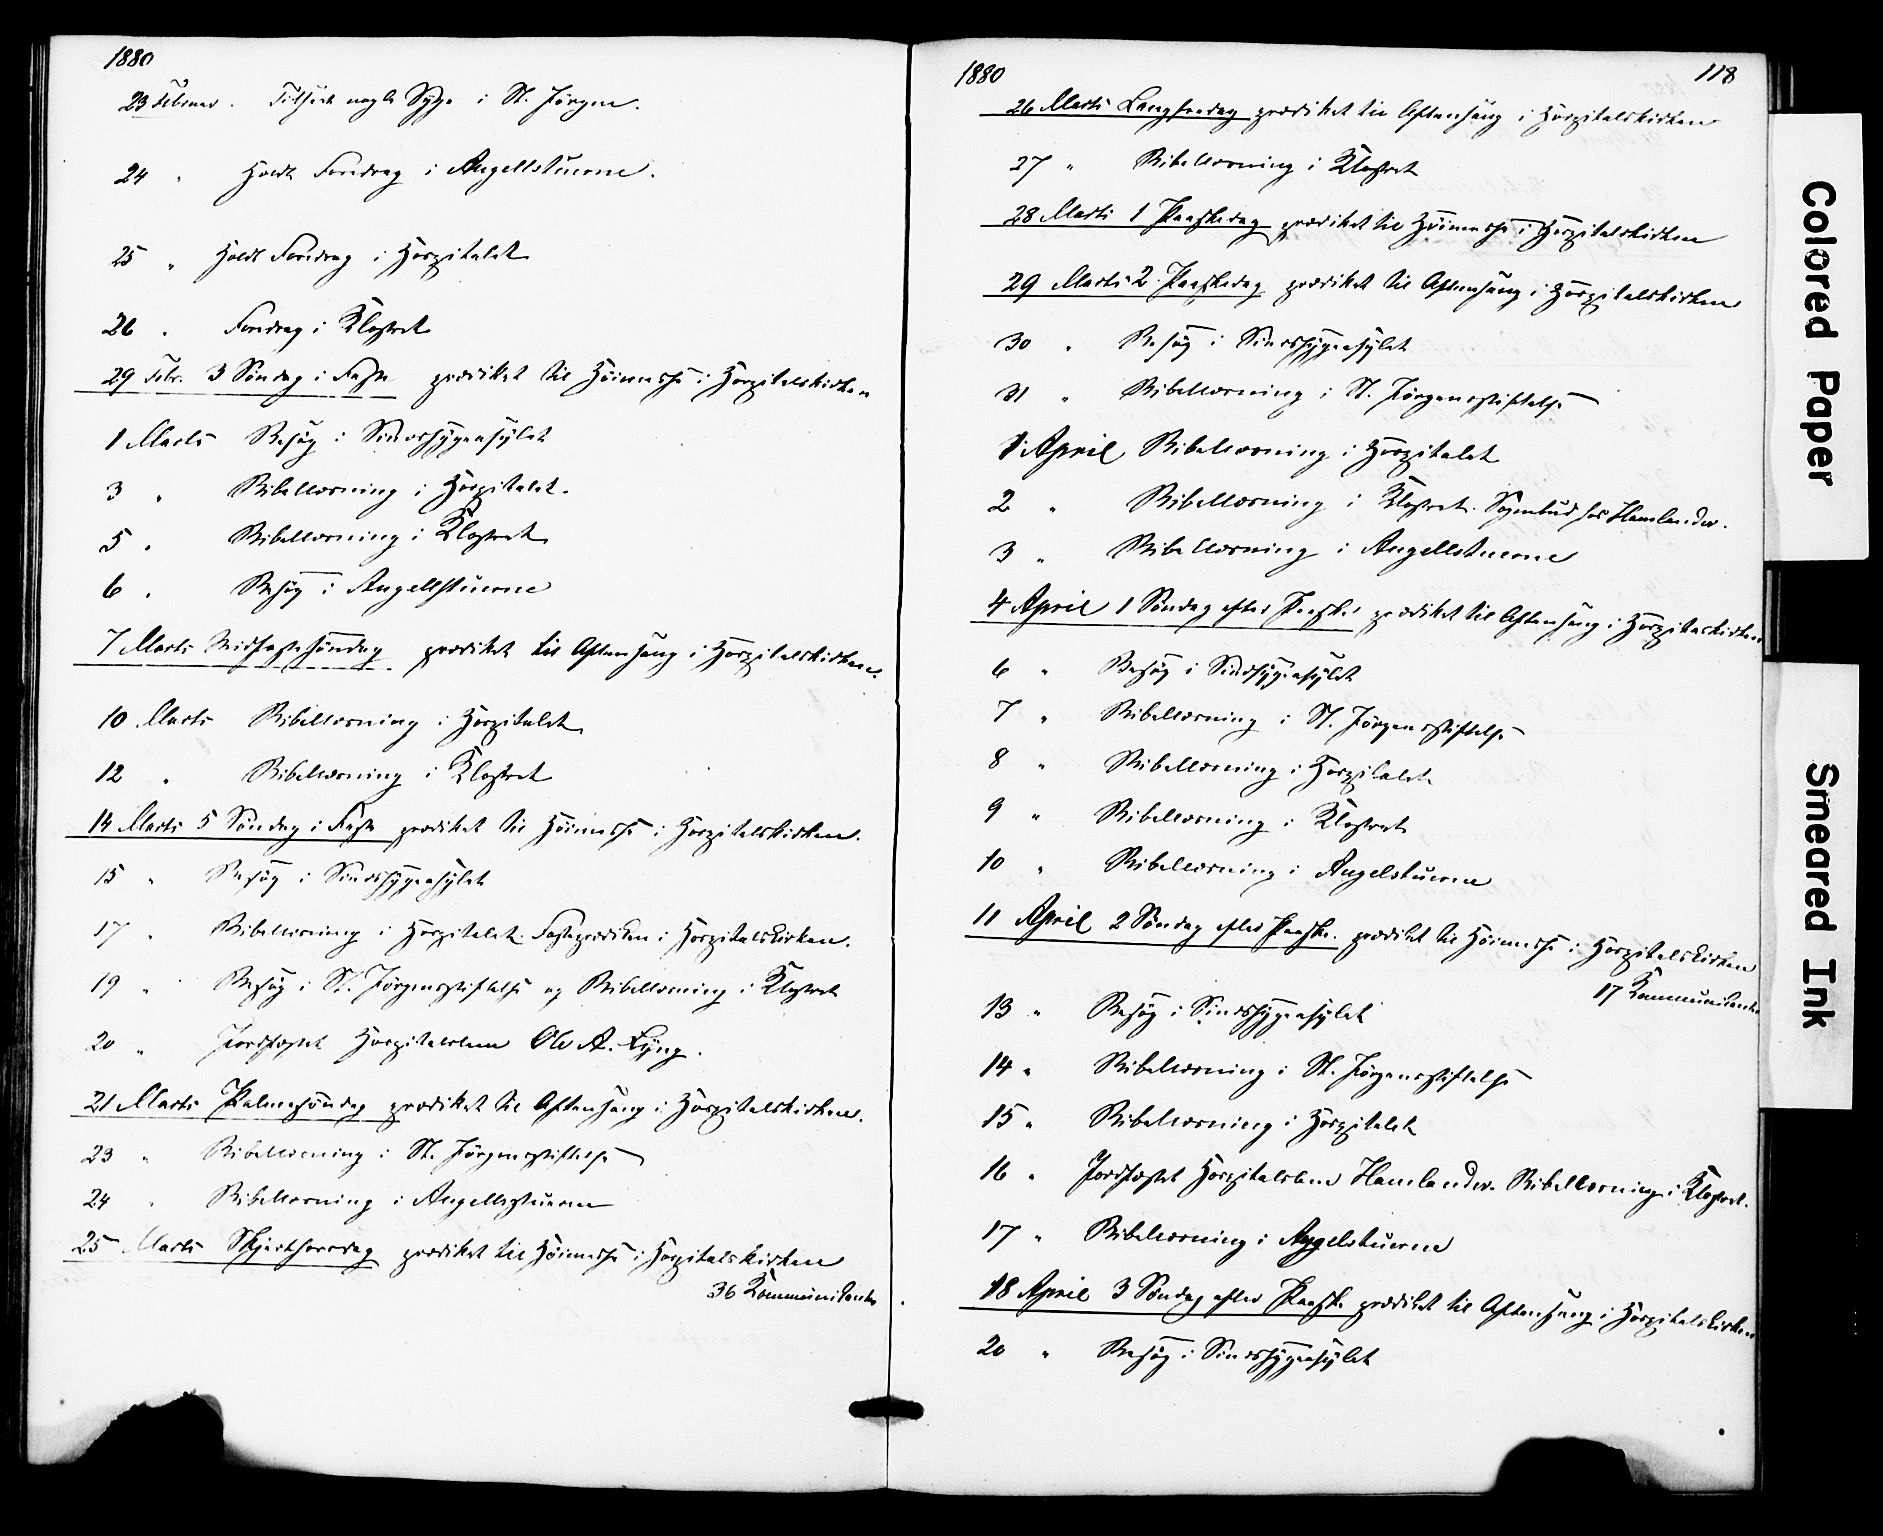 1880
23 Februar. Tilseet nogle Syge i St. Jörgen.
24 " Holdt Foredrag i Angellstuerne.
25 " Holdt Foredrag i Hospitalet
26 " Foredrag i Klostret
29 Febr. 3 Söndag i Faste prædiket til Höimesse i Hospitalskirken
1 Marts Besög i Sindssygeasylet
3 " Bibellæsning i Hospitalet.
5 " Bibellæsning i Klostret
6 " Besög i Angellstuerne
7 Marts Midfastesöndag prædiket til Aftensang i Hospitalskirken.
10 Marts Bibellæsning i Hospitalet
12 " Bibellæsning i Klostret
14 Marts 5 Söndag i Faste prædiket til Höimesse i Hospitalskirken.
15 " Besög i Sindssygeasylet
17 " Bibellæsning i Hospitalet. Fasteprædiken i Hospitalskirken.
19 " Besög i St. Jörgensstiftelse og Bibellæsning i Klostret
20 " Jordfæstet Hospitalslem Ole A. Lyng.
21 Marts Palmesöndag prædiket til Aftensang i Hospitalskirken.
23 " Bibellæsning i St. Jörgensstiftelse
24 " Bibellæsning i Angellsstuerne
25 Marts Skjærthorsdag prædiket til Höimesse i Hospitalskirken
36 Kommunikanter.
1880
118
26 Marts Langfredag prædiket til Aftensang i Hospitalskirken
27 " Bibellæsning i Klostret
28 Marts 1 Paaskedag prædiket til Höimesse i Hospitalskirken
29 Marts 2 Paaskedag prædiket til Aftensang i Hospitalskirken
30 " Besög i Sindssygeasylet
31 " Bibellæsning i St. Jörgensstiftelse
1 April Bibellæsning i Hospitalet
2 " Bibellæsning i Klostret. Sognebud hos Hamlander.
3 " Bibellæsning i Angellstuerne
4 April 1 Söndag efter Paaske prædiket til Aftensang i Hospitalskirken
6 " Besög i Sindssygeasylet
7 " Bibellæsning i St. Jörgensstiftelse
8 " Bibellæsning i Hospitalet
9 " Bibellæsning i Klostret
10 " Bibellæsning i Angelstuerne
11 April 2 Söndag efter Paaske. prædiket til Höimesse i Hospitalskirken
17 Kommunikanter
13 " Besög i Sindssygeasylet
14 " Bibellæsning i St. Jörgensstiftelse
15 " Bibellæsning i Hospitalet
16 " Jordfæstet Hospitalslem Hamlander. Bibellæsning i Klostret.
17 " Bibellæsning i Angelstuerne
18 April 3 Söndag efter Paaske prædiket til Aftensang i Hospitalskirken
20 " Besög i Sindssygeasylet
Colored Paper
Smeared Ink